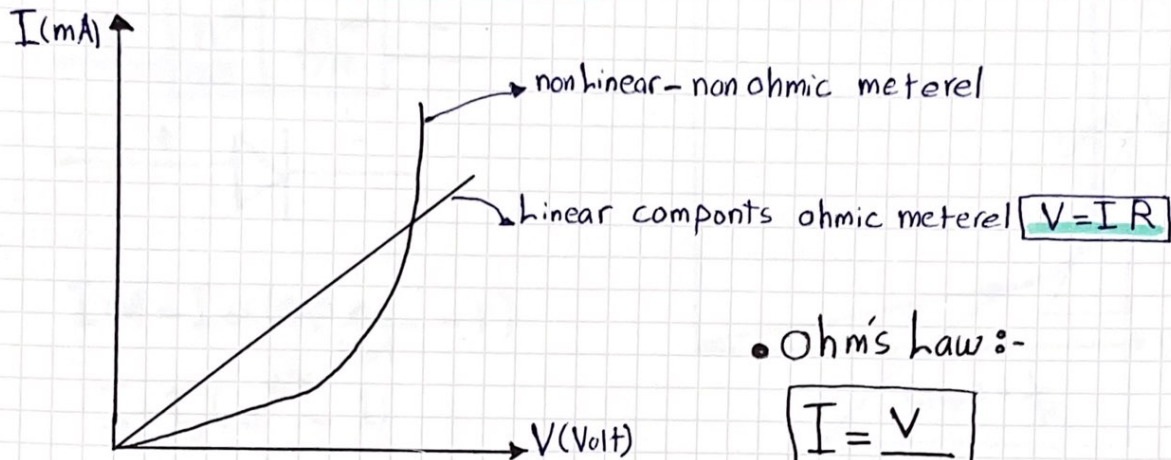 I(mA)
non Linear - non ohmic meterel
Linear componts ohmic meterel V=IR
• Ohm's Law :-
I = V
V(Volt)